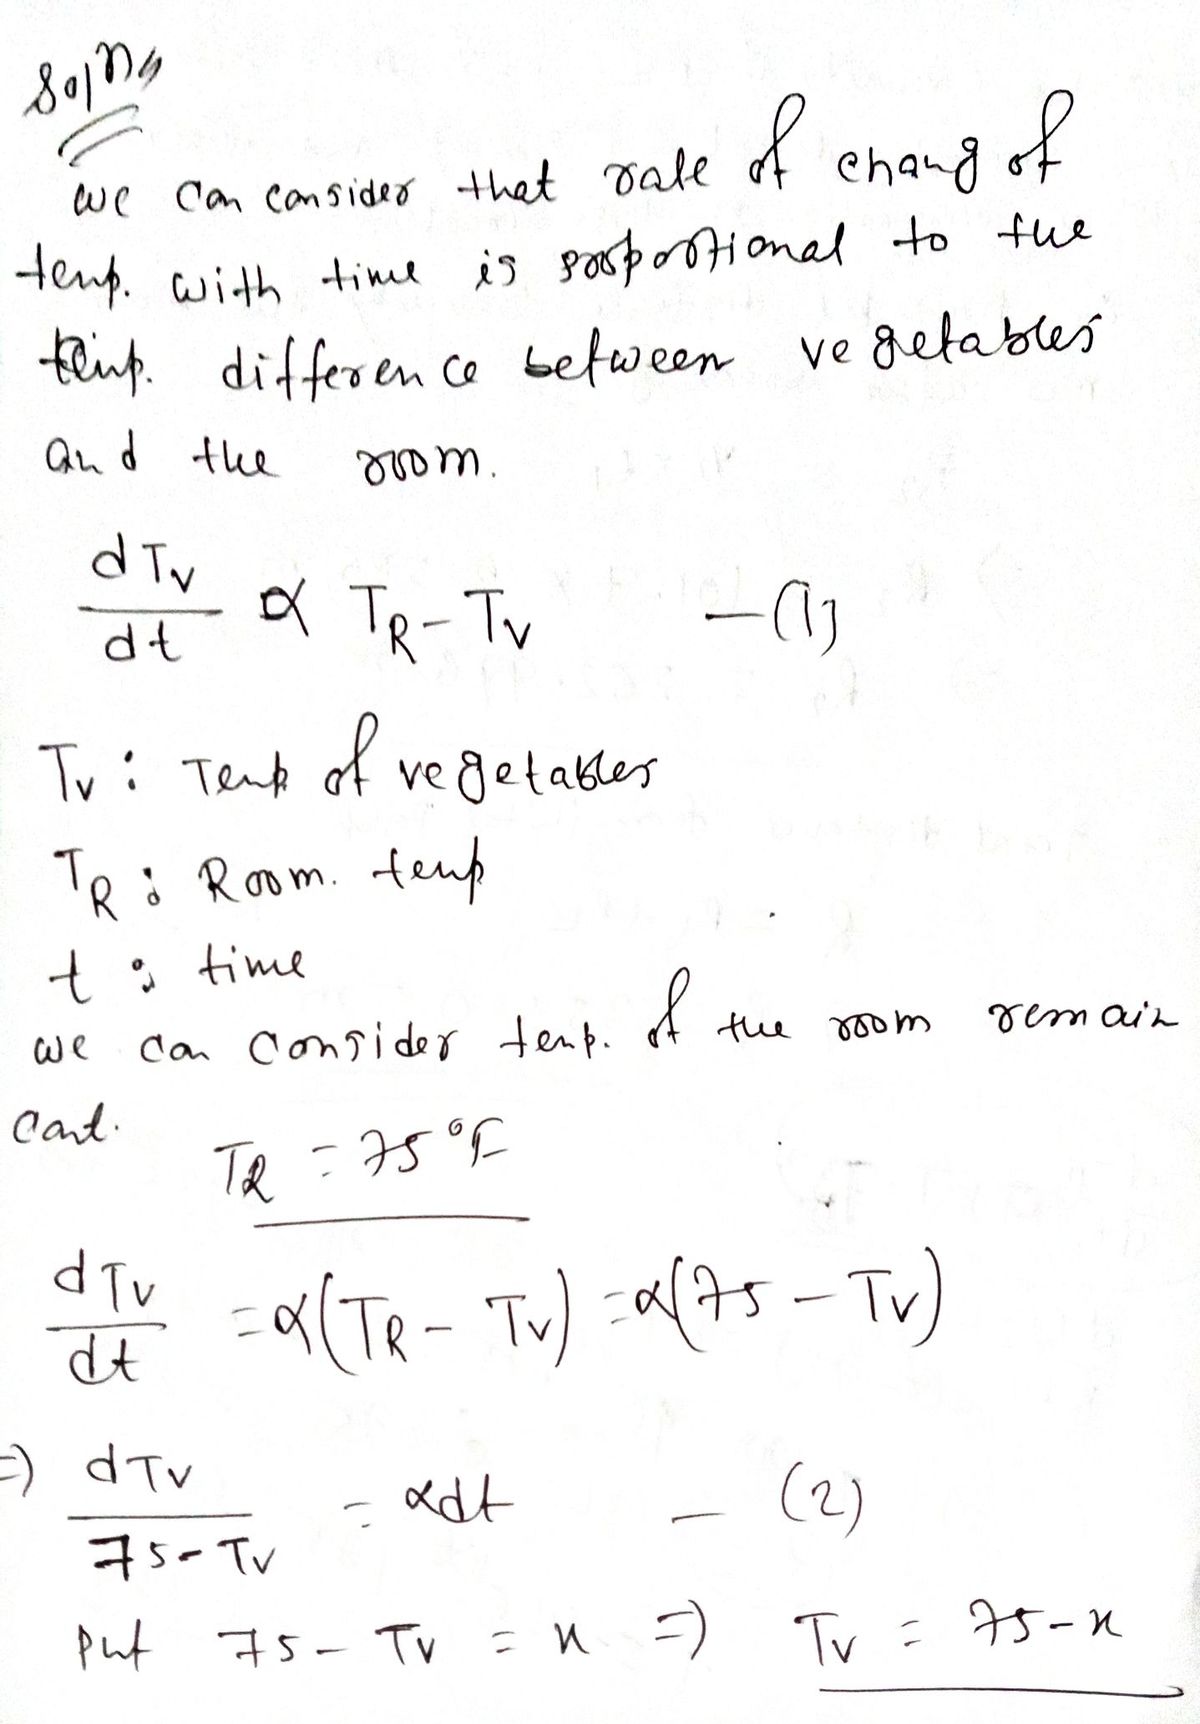 Solⁿ,
we can consider that rate of chang of
temp. with time is proportional to the
temp. difference between vegetables
and the room.
dTv/dt ∝ TR - Tv — (1)
Tv : Temp of vegetables
TR : Room. temp
t : time
we can consider temp. of the room remain
cont.
TR = 75°F
dTv/dt = α(TR - Tv) = α(75 - Tv)
=) dTv/75-Tv = αdt — (2)
put 75 - Tv = x =) Tv = 75-x